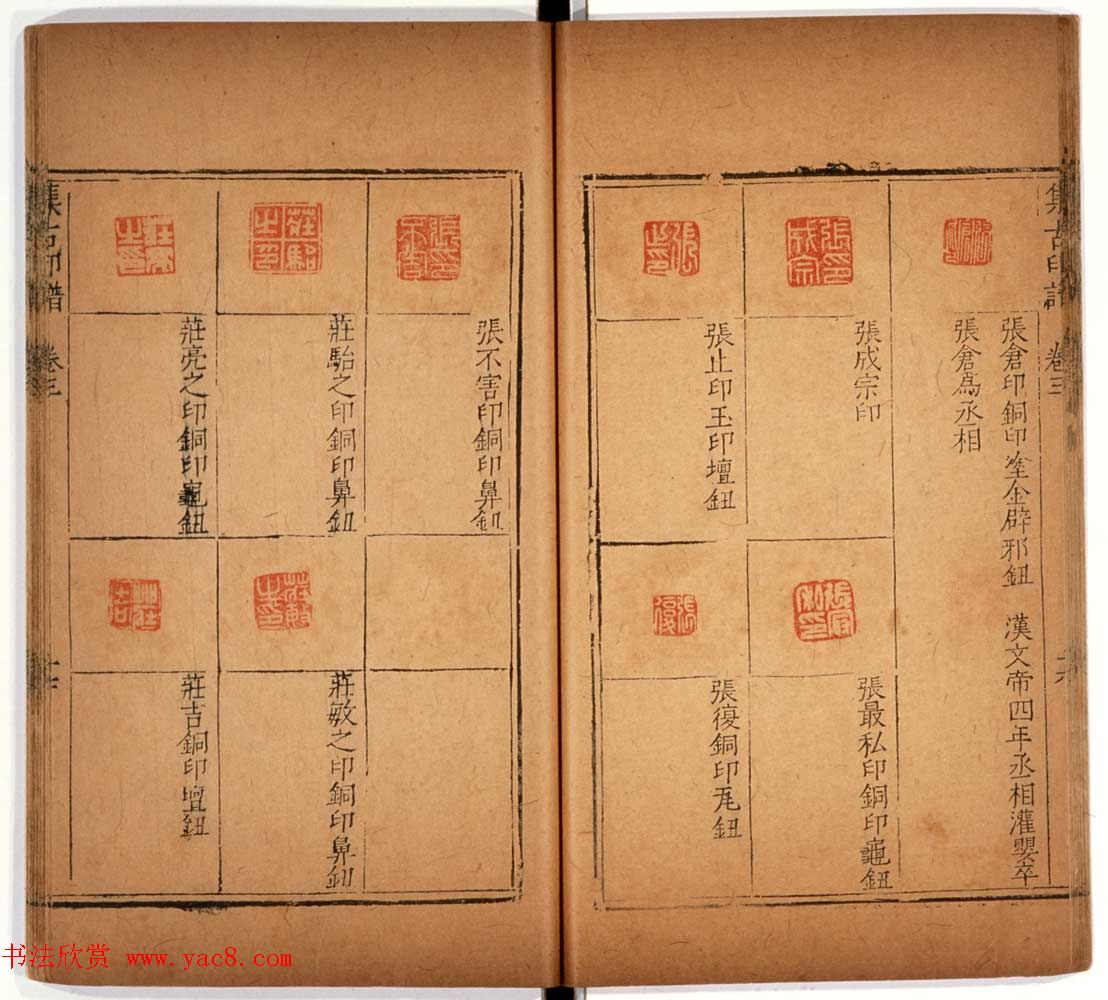 集古印譜 卷三
張倉印銅印塗金辟邪鈕 漢文帝四年丞相灌嬰卒
張倉爲丞相
張成宗印
張成宗印
張最私印銅印龜鈕
張止印
張止印玉印壇鈕
張復
張復銅印瓦鈕
張不害印銅印鼻鈕
莊駘之印
莊駘之印銅印鼻鈕
莊敏之印銅印鼻鈕
莊亮之印銅印龜鈕
莊吉銅印壇鈕
集古印譜 卷三
书法欣赏 www.yac8.com